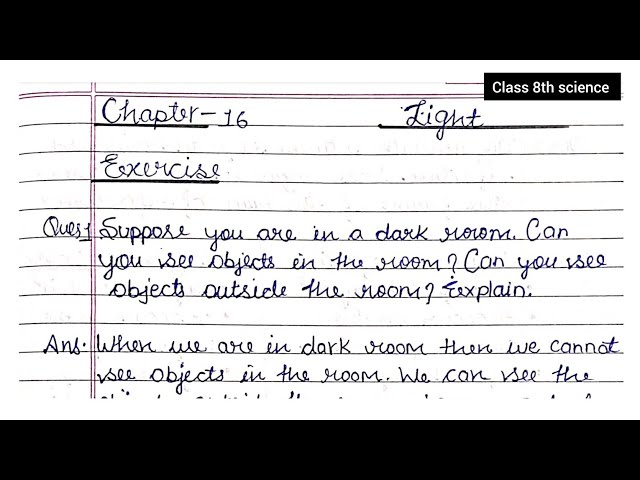 Class 8th science
Chapter-16 Light
Exercise
Ques1 Suppose you are in a dark room. Can
you see objects in the room? Can you see
objects outside the room? Explain.
Ans. When we are in dark room then we cannot
see objects in the room. We can see the